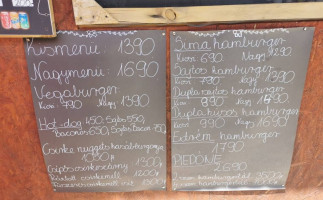 Kismenü: 1390
Nagymenü: 1690
Vegaburger
Kicsi 790 Nagy 1390
Hot-dog 450, Sajtos 550,
Baconos 650, Sajt, bacon 750
Csirke nuggets hasábburgonya
1090
Csípős csirkeszárny 1300
1300
Sima hamburger
Kicsi 690 Nagy 1290
Sajtos hamburger
Kicsi 790 Nagy
Dupla sajtos
Kicsi 890 Nagy
Dupla húsos hamburger
Kicsi 990 Nagy 1690
Extrém hamburger
1790
PIEDONE
2690